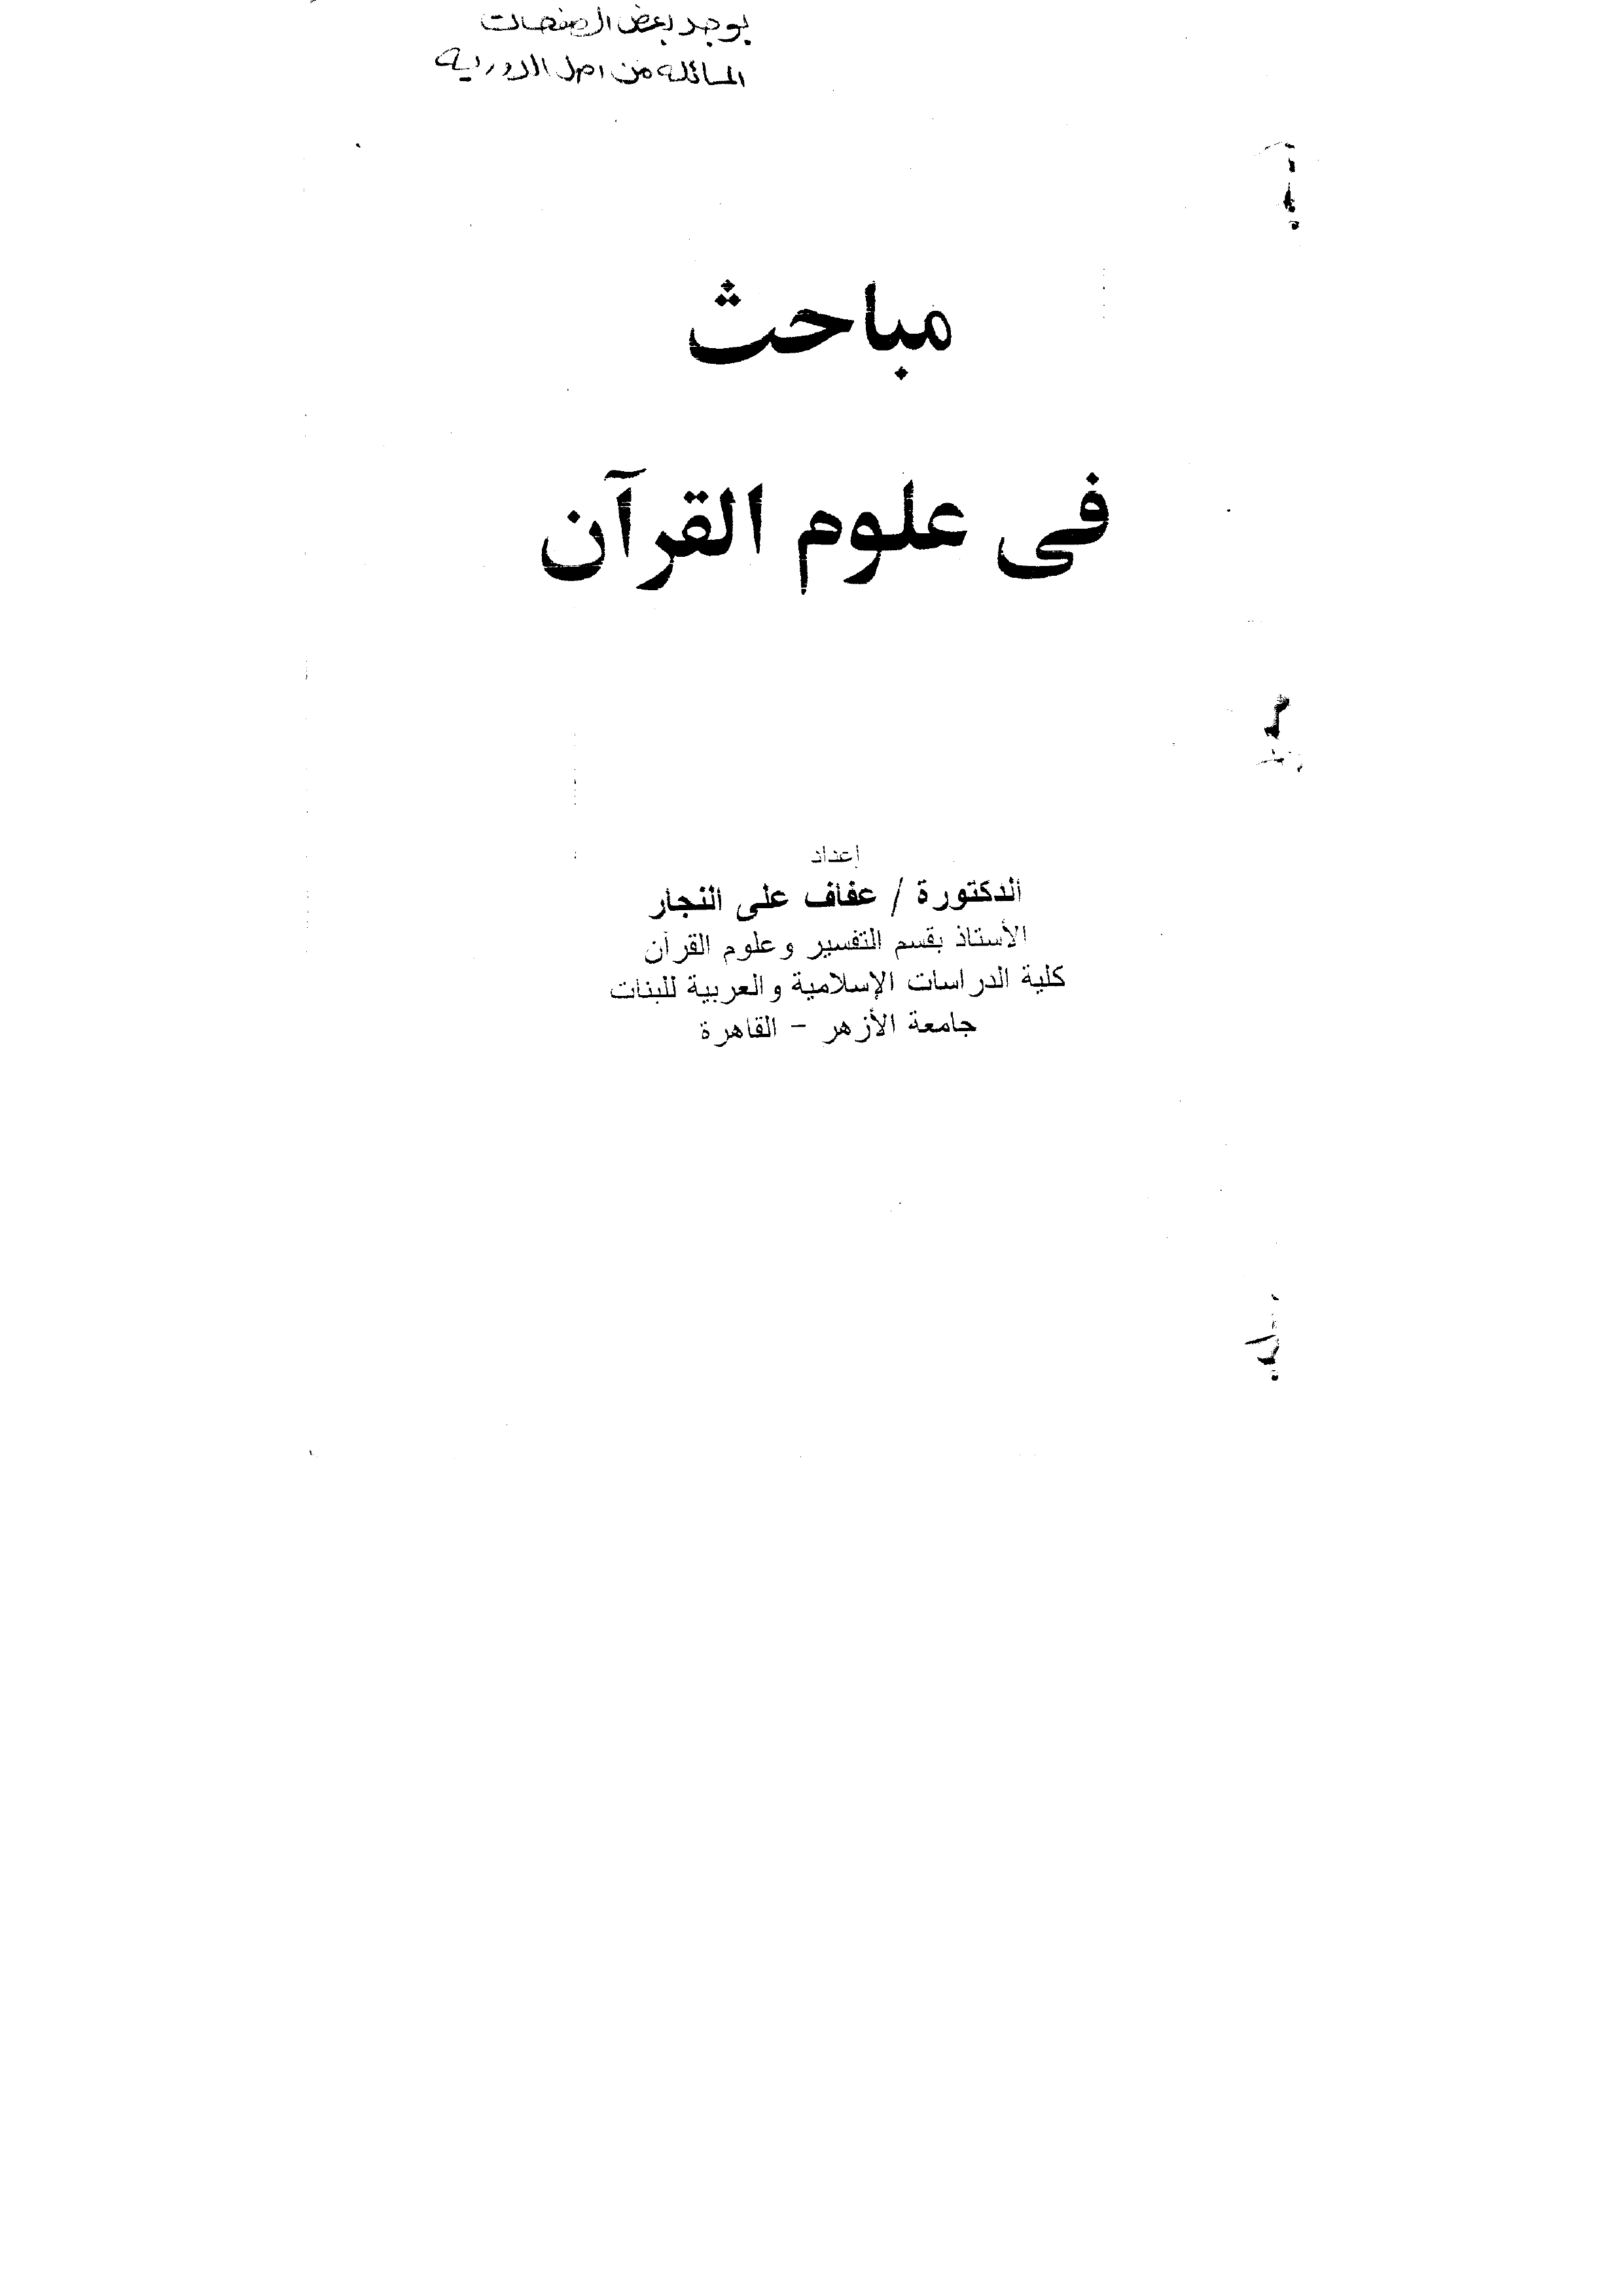 يوجد بعض الصفحات
المائله من اصل الدوريه
مباحث
فى علوم القرآن
إعداد
الدكتورة / عفاف على النجار
الأستاذ بقسم التفسير وعلوم القرآن
كلية الدراسات الإسلامية والعربية للبنات
جامعة الأزهر - القاهرة